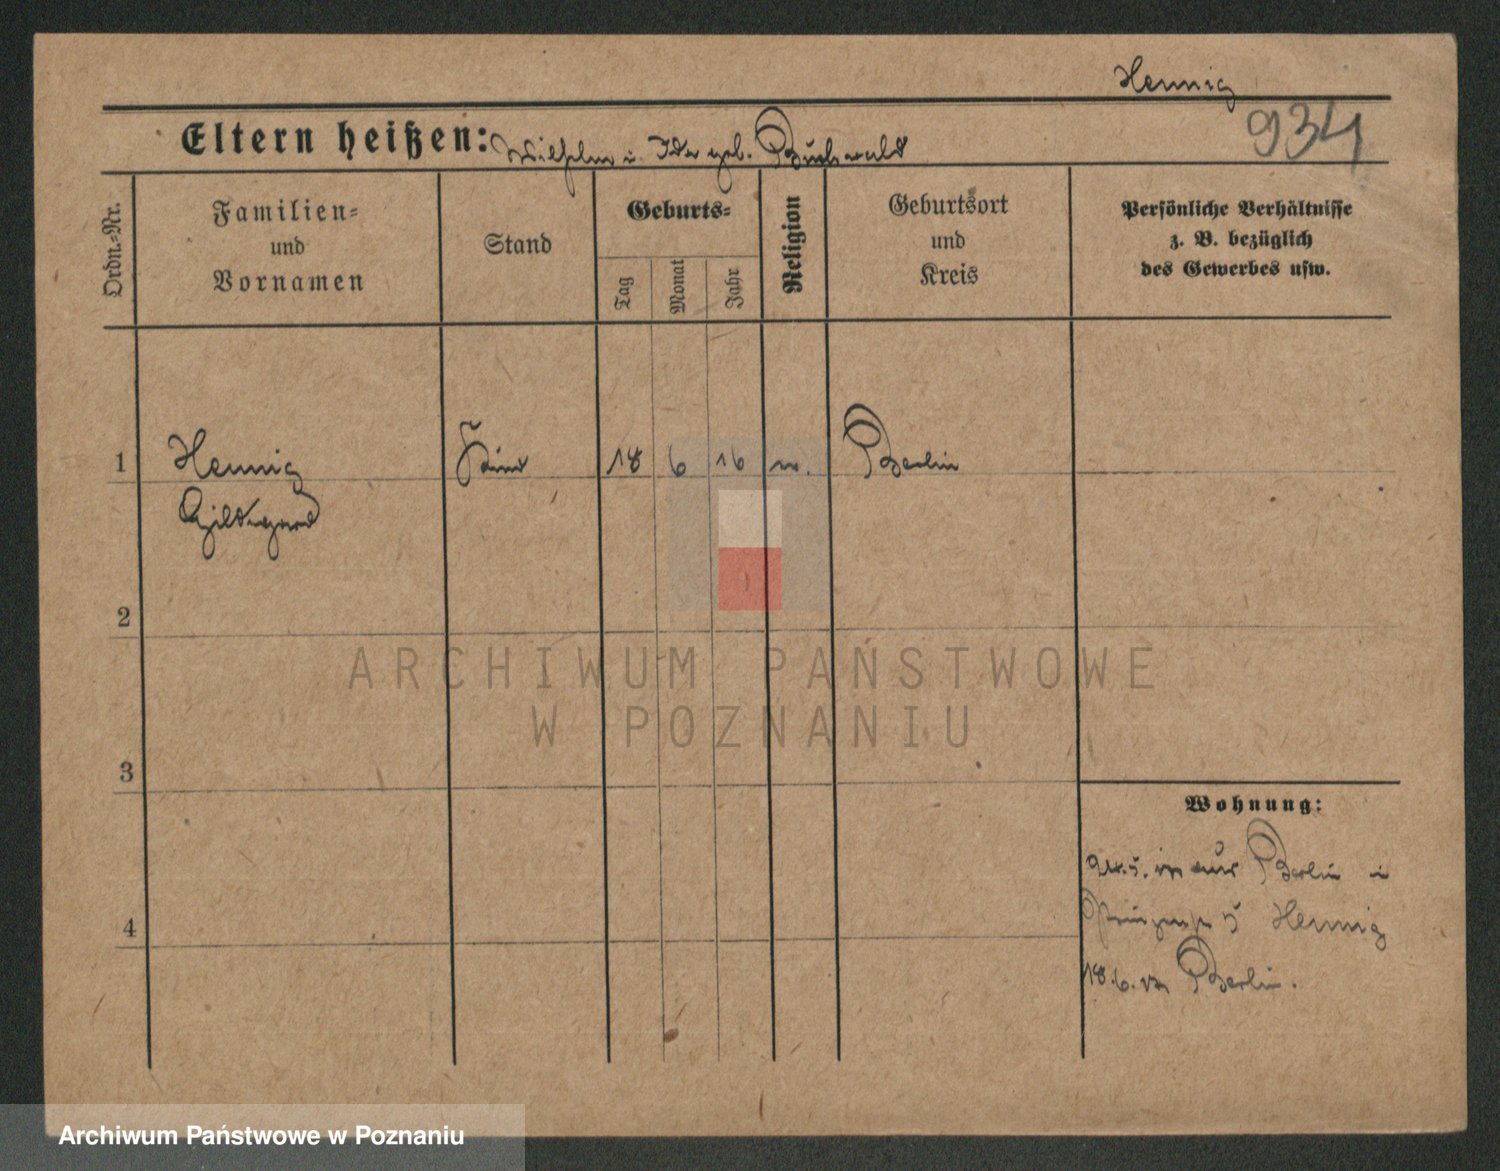 Hennig
934
Eltern heißen: Wilhelm u. Ida geb. Buchwald
Ordn.=Nr.
Familien=
und
Vornamen
Stand
Geburts=
Tag
Monat
Jahr
Religion
Geburtsort
und
Kreis
Persönliche Verhältnisse
z. B. bezüglich
des Gewerbes usw.
1
Hennig
Hildegard
Kind
18
6
16
Berlin
2
ARCHIWUM PAŃSTWOWE
W POZNANIU
3
Wohnung:
aus Berlin
5 Hennig
4
18.6. Berlin.
Archiwum Państwowe w Poznaniu